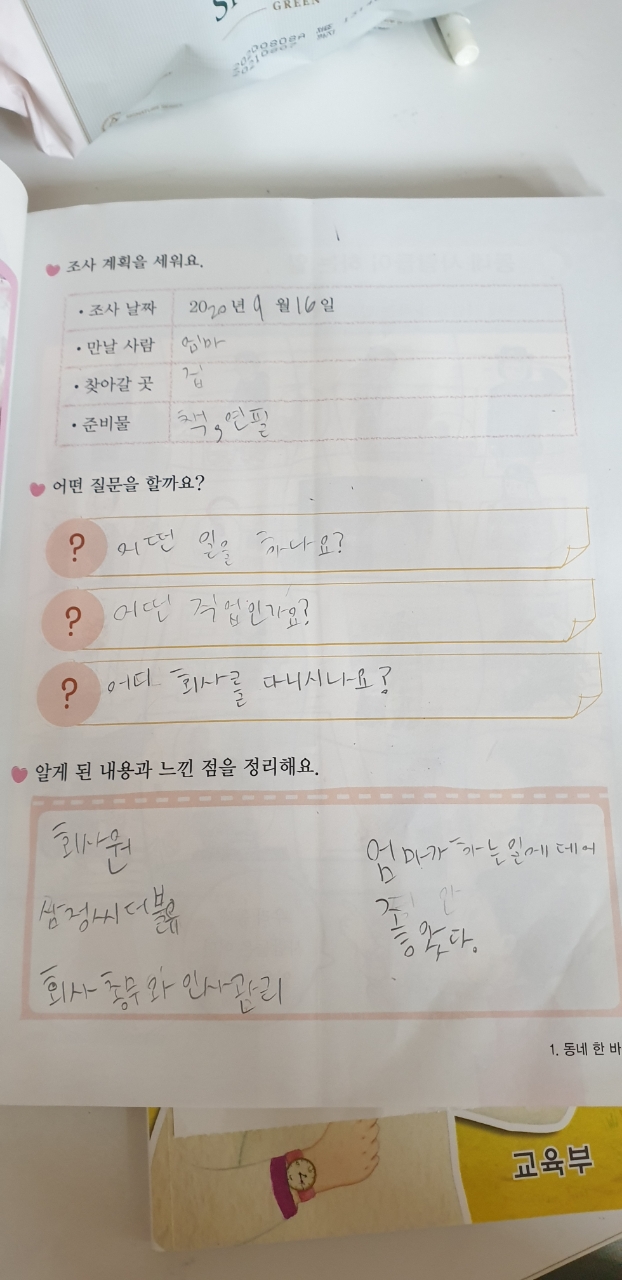 GREEN
20200808A
20210802
조사 계획을 세워요.
• 조사 날짜 2020년 9월 16일
• 만날 사람 엄마
• 찾아갈 곳 집
• 준비물 책, 연필
어떤 질문을 할까요?
? 어떤 일을 하나요?
? 어떤 직업인가요?
? 어디 회사를 다니시나요?
알게 된 내용과 느낀 점을 정리해요.
회사원
삼정씨더블유
회사 총무와 인사관리
엄마가 하는일에 데어
알았다.
1. 동네 한 바
교육부